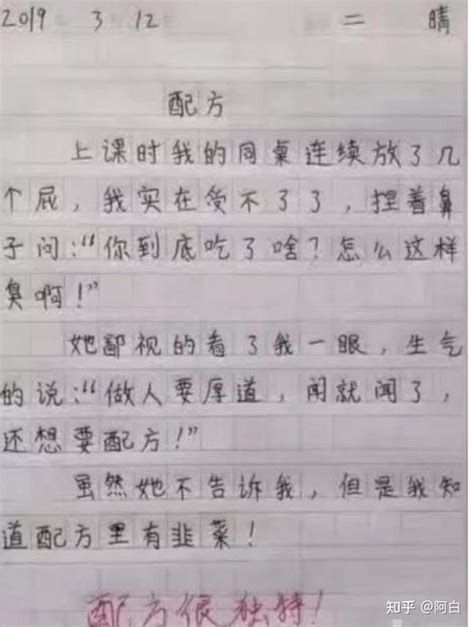 2019 3 12 二 晴
配方
上课时我的同桌连续放了几
个屁，我实在受不了了，捏着鼻
子问：“你到底吃了啥？怎么这样
臭啊！”
她鄙视的看了我一眼，生气
的说：“做人要厚道，闻就闻了，
还想要配方！”
虽然她不告诉我，但是我知
道配方里有韭菜！
配方很独特！
知乎 @阿白